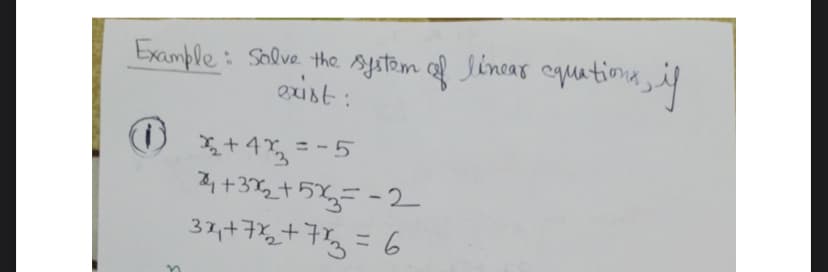 Example : Solve the system of linear equations, if
exist :
(i) x₂ + 4x₃ = -5
x₁ + 3x₂ + 5x₃ = -2
3x₁ + 7x₂ + 7x₃ = 6